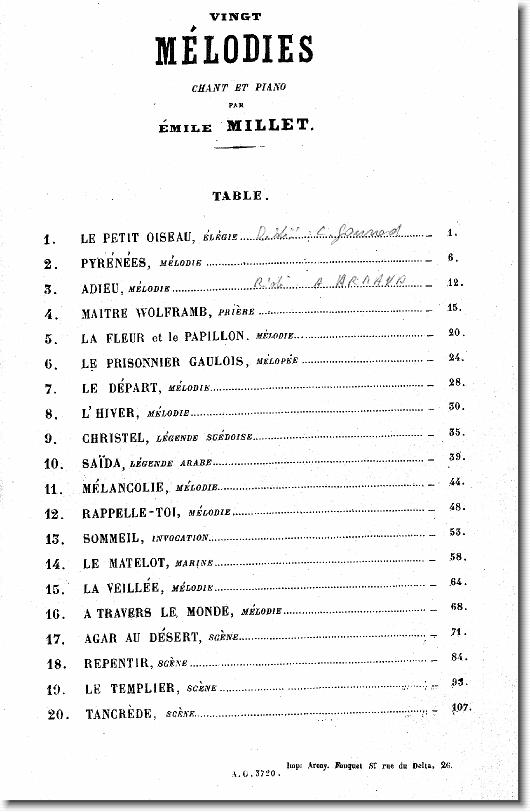 VINGT
MÉLODIES
CHANT ET PIANO
PAR
ÉMILE MILLET.
TABLE.
1. LE PETIT OISEAU, ÉLÉGIE........ Gounod – 1.
2. PYRÉNÉES, MÉLODIE ........ – 6.
3. ADIEU, MÉLODIE........ – 12.
4. MAITRE WOLFRAMB, PRIÈRE ........ – 15.
5. LA FLEUR et le PAPILLON. MÉLODIE........ – 20.
6. LE PRISONNIER GAULOIS, MÉLOPÉE ........ – 24.
7. LE DÉPART, MÉLODIE........ – 28.
8. L'HIVER, MÉLODIE........ – 30.
9. CHRISTEL, LÉGENDE SUÉDOISE........ – 35.
10. SAÏDA, LÉGENDE ARABE........ – 39.
11. MÉLANCOLIE, MÉLODIE........ – 44.
12. RAPPELLE-TOI, MÉLODIE........ – 48.
13. SOMMEIL, INVOCATION........ – 53.
14. LE MATELOT, MARINE........ – 58.
15. LA VEILLÉE, MÉLODIE........ – 64.
16. A TRAVERS LE MONDE, MÉLODIE........ – 68.
17. AGAR AU DÉSERT, SCÈNE........ – 71.
18. REPENTIR, SCÈNE........ – 84.
19. LE TEMPLIER, SCÈNE........ – 93.
20. TANCRÈDE, SCÈNE........ – 107.
Imp: Arouy. Fouquet St rue du Delta, 26.
A.G. 3720.